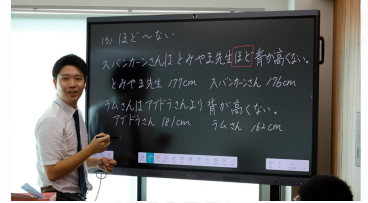 (3) ほど〜ない
スバンカーンさんは とみやま先生ほど 背が高くない。
とみやま先生 177cm スバンカーンさん 176cm
ラムさんはアイドラさんより 背が高くない。
アイドラさん 181cm ラムさん 162cm